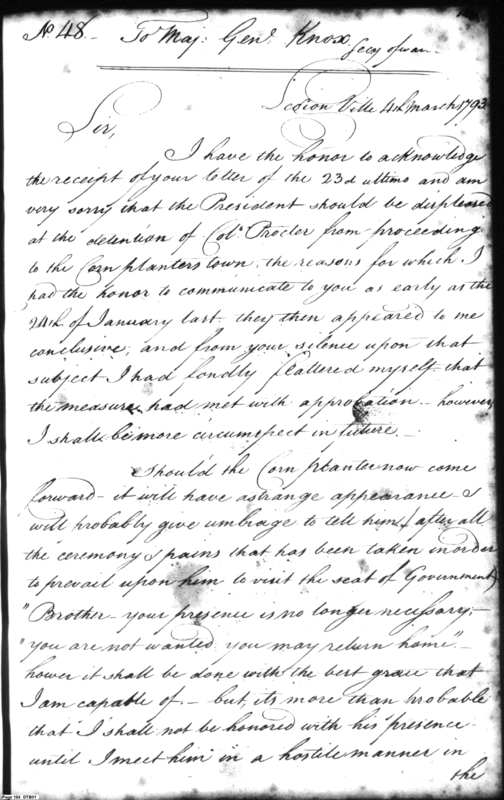 No 48. To Maj: Genl. Knox
Secy of war
Legion Ville 4th March 1793
Sir,
I have the honor to acknowledge
the receipt of your letter of the 23d ultimo and am
very sorry that the President should be displeased
at the detention of Colo. Procter from proceeding
to the Corn planters town, the reasons for which I
had the honor to communicate to you as early as the
24th of January last. they then appeared to me
conclusive, and from your silence upon that
subject I had fondly flattered myself that
the measure had met with approbation — however
I shall be more circumspect in future. —
Should the Corn planter now come
forward — it will have a strange appearance — &
will probably give umbrage to tell him, (after all
the ceremony & pains that has been taken in order
to prevail upon him to visit the seat of Government)
"Brother — your presence is no longer necessary; —
"you are not wanted you may return home" —
hower it shall be done with the best grace that
I am capable of. — but, its more than probable
that I shall not be honored with his presence
until I meet him in a hostile manner in
the
Page 184 DTB01